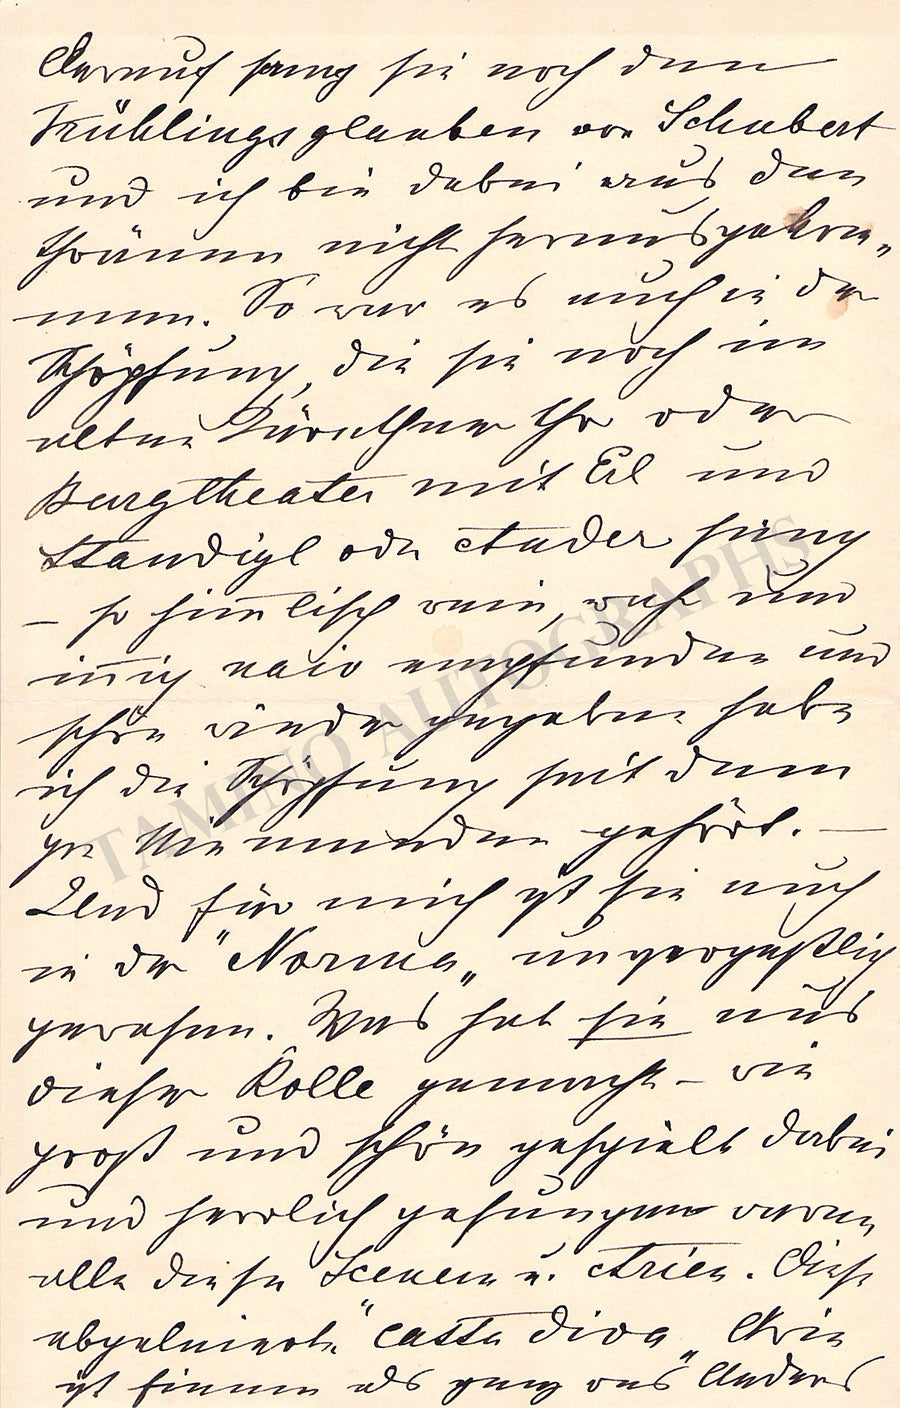 Darauf sang sie noch den
Frühlingsglauben von Schubert
und ich bin dabei aus den
Thränen nicht herausgekom„
men. So war es auch in der
Schöpfung, die sie noch im
alten Kärnthner Thr oder
Burgtheater mit Erl und
Staudigl oder Ander sang
– so him̅lisch rein, und
in̅ig naiv empfunden und
schön wieder gegeben habe
ich die Schöpfung seit dem
von Niemanden gehört. —
Und für mich ist sie auch
in der "Norma„ unvergeßlich
gewesen. Was hat sie aus
dieser Rolle gemacht – wie
groß und schön gespielt dabei
und herrlich gesungen waren
alle diese Scenen u. Arien. Diese
abgeleierte "Casta diva„ Arie
ist einem als ganz was Anders
TAMINO AUTOGRAPHS